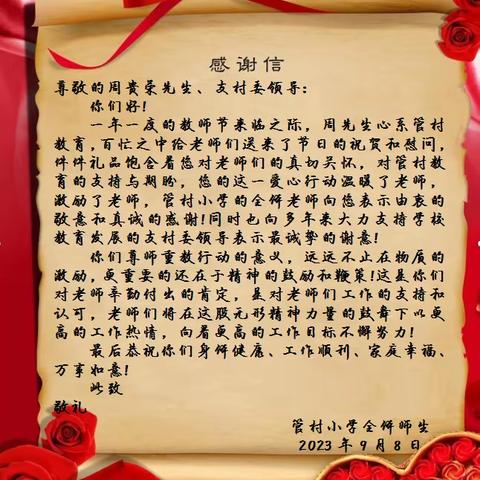 感谢信
尊敬的周贵荣先生、支村委领导:
你们好!
一年一度的教师节来临之际,周先生心系管村
教育,百忙之中给老师们送来了节日的祝贺和慰问,
件件礼品饱含着您对老师们的真切关怀,对管村教
育的支持与期盼,您的这一爱心行动温暖了老师,
激励了老师,管村小学的全体老师向您表示由衷的
敬意和真诚的感谢!同时也向多年来大力支持学校
教育发展的支村委领导表示最诚挚的谢意!
你们尊师重教行动的意义,远远不止在物质的
激励,更重要的还在于精神的鼓励和鞭策!这是你们
对老师辛勤付出的肯定,是对老师们工作的支持和
认可,老师们将在这股无形精神力量的鼓舞下以更
高的工作热情,向着更高的工作目标不懈努力!
最后恭祝你们身体健康、工作顺利、家庭幸福、
万事如意!
此致
敬礼
管村小学全体师生
2023年9月8日